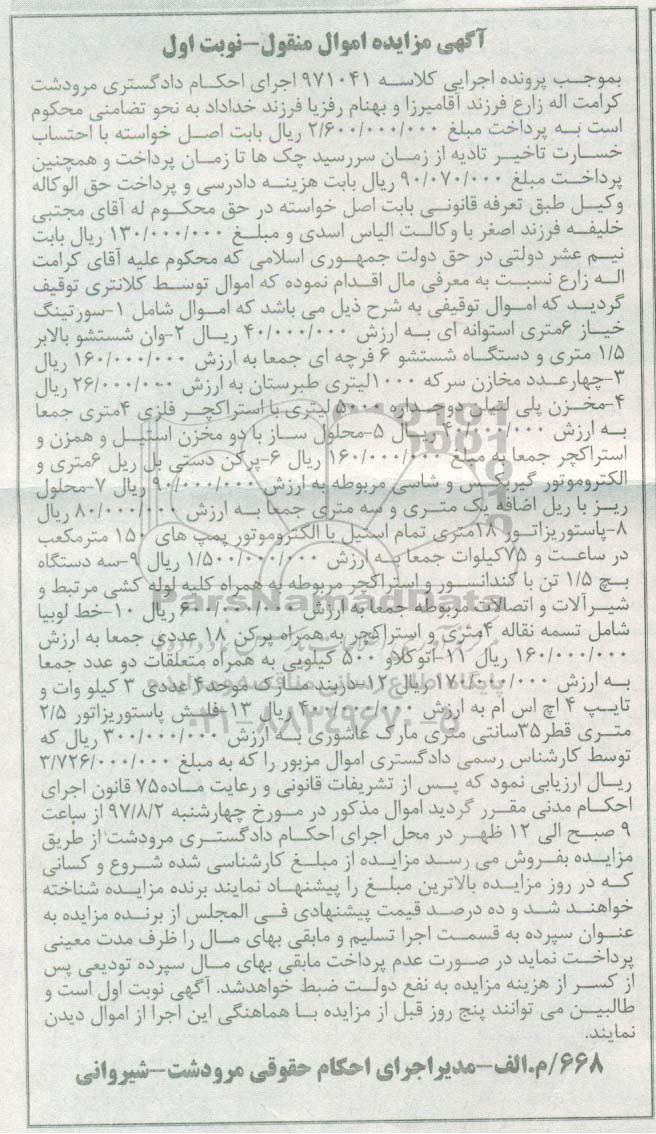 آگهی مزایده اموال منقول-نوبت اول
بموجب پرونده اجرایی کلاسه ۹۷۱۰۴۱ اجرای احکام دادگستری مرودشت
کرامت اله زارع فرزند آقامیرزا و بهنام رفزیا فرزند خداداد به نحو تضامنی محکوم
است به پرداخت مبلغ ۲/۶۰۰/۰۰۰/۰۰۰ ریال بابت اصل خواسته با احتساب
خسارت تاخیر تادیه از زمان سررسید چک ها تا زمان پرداخت و همچنین
پرداخت مبلغ ۹۰/۰۷۰/۰۰۰ ریال بابت هزینه دادرسی و پرداخت حق الوکاله
وکیل طبق تعرفه قانونی بابت اصل خواسته در حق محکوم له آقای مجتبی
خلیفه فرزند اصغر با وکالت الیاس اسدی و مبلغ ۱۳۰/۰۰۰/۰۰۰ ریال بابت
نیم عشر دولتی در حق دولت جمهوری اسلامی که محکوم علیه آقای کرامت
اله زارع نسبت به معرفی مال اقدام نموده که اموال توسط کلانتری توقیف
گردید که اموال توقیفی به شرح ذیل می باشد که اموال شامل ۱-سورتینگ
خیاز ۶متری استوانه ای به ارزش ۴۰/۰۰۰/۰۰۰ ریال ۲-وان شستشو بالابر
۱/۵ متری و دستگاه شستشو ۶ فرچه ای جمعا به ارزش ۱۶۰/۰۰۰/۰۰۰ ریال
۳-چهارعدد مخازن سرکه ۱۰۰۰لیتری طبرستان به ارزش ۲۶/۰۰۰/۰۰۰ ریال
۴-مخزن پلی اتیلن دوجداره ۵۰۰۰ لیتری با استراکچر فلزی ۴متری جمعا
به ارزش ۴۰/۰۰۰/۰۰۰ ریال ۵-محلول ساز با دو مخزن استیل و همزن و
استراکچر جمعا به مبلغ ۱۶۰/۰۰۰/۰۰۰ ریال ۶-پرکن دستی بل ریل ۶متری و
الکتروموتور گیربکس و شاسی مربوطه به ارزش ۹۰/۰۰۰/۰۰۰ ریال ۷-محلول
ریز با ریل اضافه یک متری و سه متری جمعا به ارزش ۸۰/۰۰۰/۰۰۰ ریال
۸-پاستوریزاتور ۱۸متری تمام استیل با الکتروموتور پمپ های ۱۵۰ مترمکعب
در ساعت و ۷۵کیلوات جمعا به ارزش ۱/۵۰۰/۰۰۰/۰۰۰ ریال ۹-سه دستگاه
بچ ۱/۵ تن با کندانسور و استراکچر مربوطه به همراه کلیه لوله کشی مرتبط و
شیرآلات و اتصالات مربوطه جمعا به ارزش ۶۰۰/۰۰۰/۰۰۰ ریال ۱۰-خط لوبیا
شامل تسمه نقاله ۴متری و استراکچر به همراه پرکن ۱۸ عددی جمعا به ارزش
۱۶۰/۰۰۰/۰۰۰ ریال ۱۱-اتوکلاو ۵۰۰ کیلویی به همراه متعلقات دو عدد جمعا
به ارزش ۱۷۰/۰۰۰/۰۰۰ ریال ۱۲-دربند مارک موحد ۴عددی ۳ کیلو وات و
تایپ ۴ اچ اس ام به ارزش ۴۰۰/۰۰۰/۰۰۰ ریال ۱۳-فلش پاستوریزاتور ۲/۵
متری قطر۳۵سانتی متری مارک عاشوری به ارزش ۳۰۰/۰۰۰/۰۰۰ ریال که
توسط کارشناس رسمی دادگستری اموال مزبور را که به مبلغ ۳/۷۲۶/۰۰۰/۰۰۰
ریال ارزیابی نمود که پس از تشریفات قانونی و رعایت ماده۷۵ قانون اجرای
احکام مدنی مقرر گردید اموال مذکور در مورخ چهارشنبه ۹۷/۸/۲ از ساعت
۹ صبح الی ۱۲ ظهر در محل اجرای احکام دادگستری مرودشت از طریق
مزایده بفروش می رسد مزایده از مبلغ کارشناسی شده شروع و کسانی
که در روز مزایده بالاترین مبلغ را پیشنهاد نمایند برنده مزایده شناخته
خواهند شد و ده درصد قیمت پیشنهادی فی المجلس از برنده مزایده به
عنوان سپرده به قسمت اجرا تسلیم و مابقی بهای مال را ظرف مدت معینی
پرداخت نماید در صورت عدم پرداخت مابقی بهای مال سپرده تودیعی پس
از کسر از هزینه مزایده به نفع دولت ضبط خواهدشد. آگهی نوبت اول است و
طالبین می توانند پنج روز قبل از مزایده با هماهنگی این اجرا از اموال دیدن
نمایند.
۶۶۸/م.الف-مدیراجرای احکام حقوقی مرودشت-شیروانی
ParsNamadData
پایگاه اطلاع رسانی مناقصه و مزایده
۰۲۱-۸۸۳۴۹۶۷۰-۵